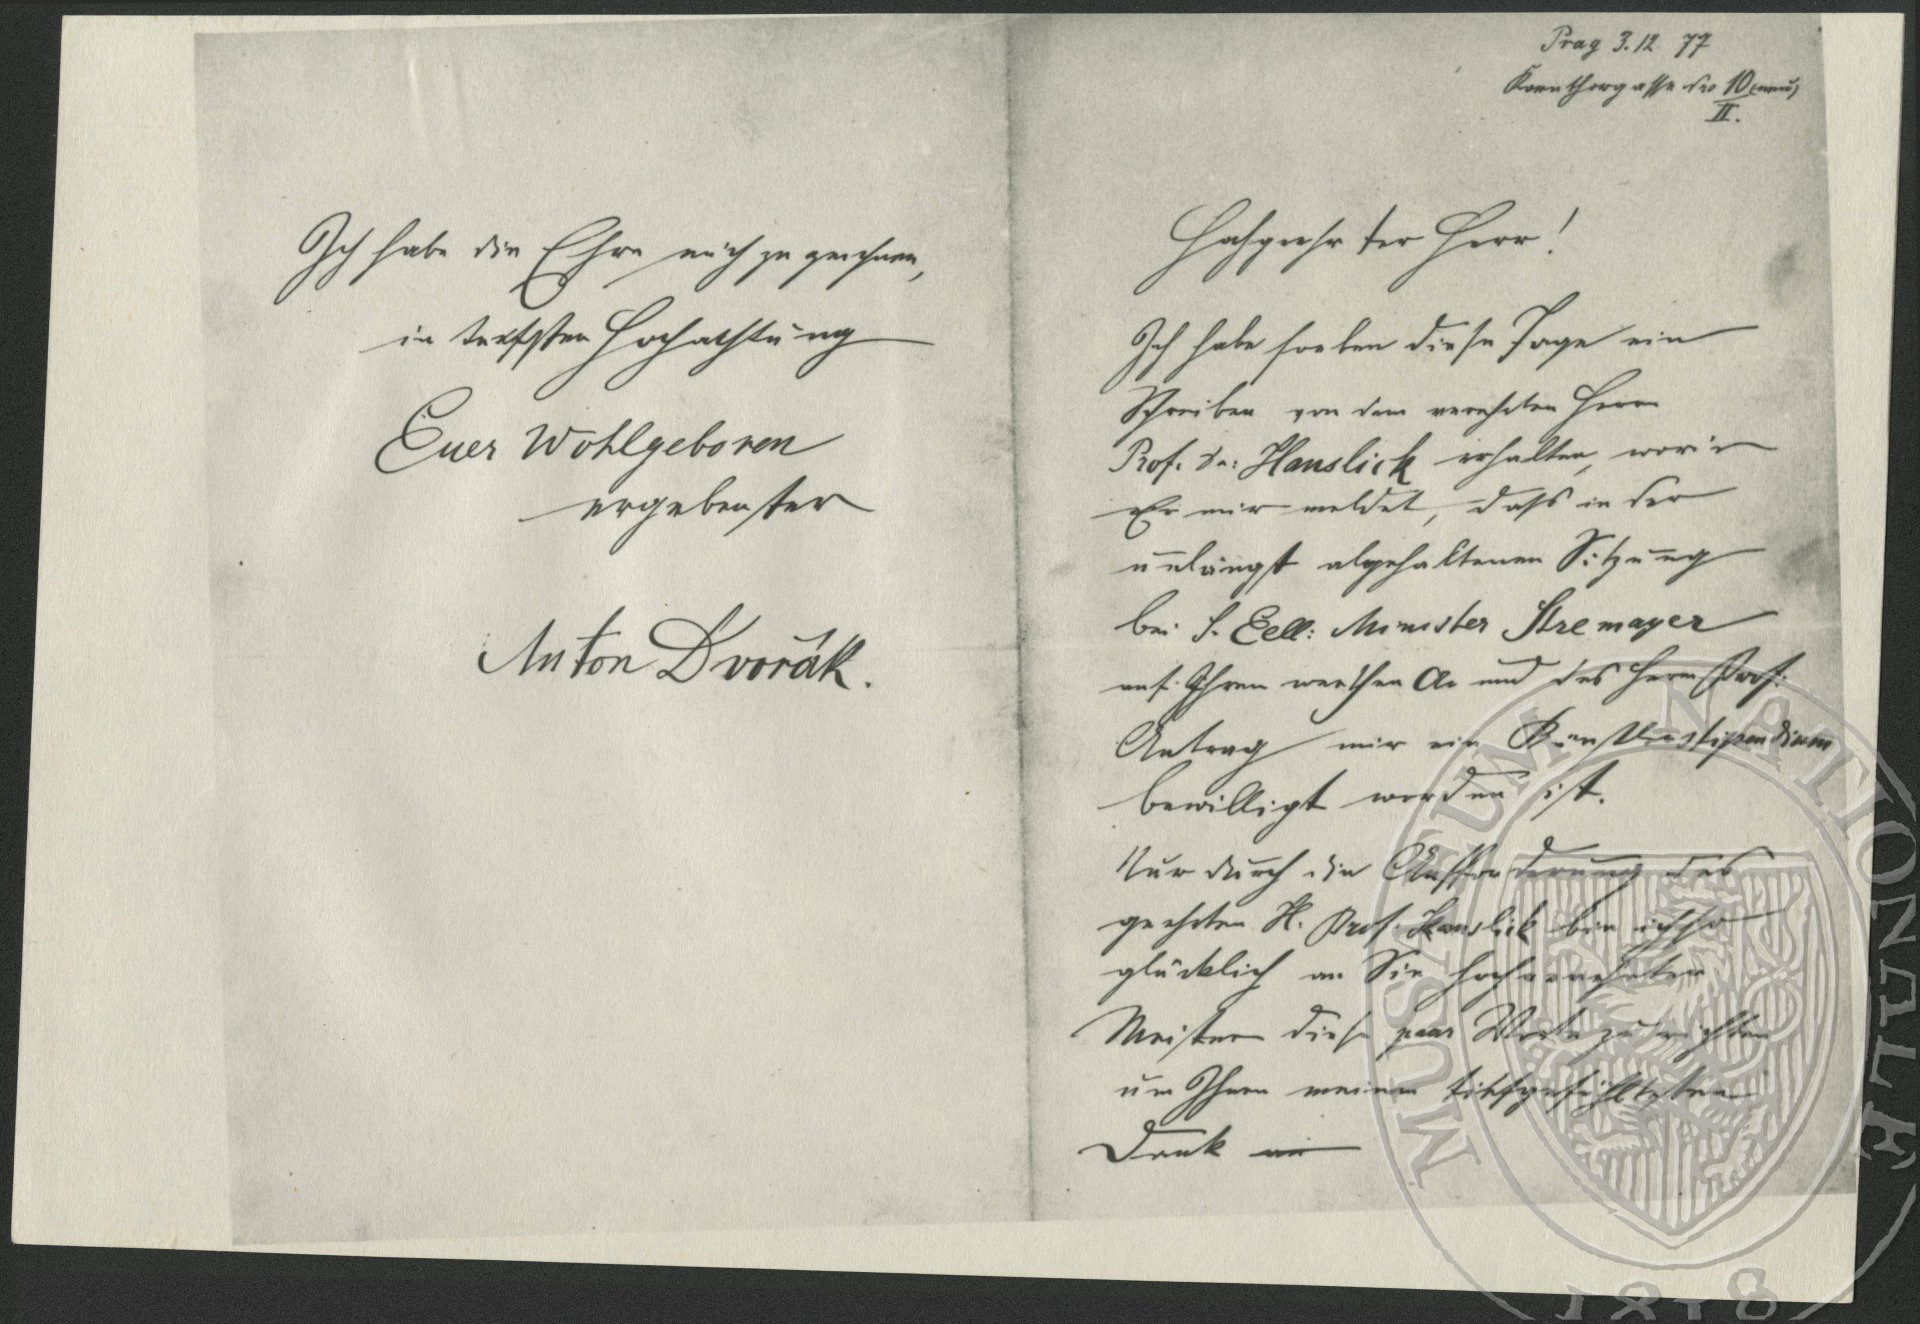 Prag 3.12 77
Kornthorgasse No 10 neu,
II.
Hochgeehrter Herr!
Ich habe soeben diese Tage ein
Schreiben von dem verehrten Herrn
Prof. Dr: Hanslick erhalten, worin
Er mir meldet, dass in der
unlängst abgehaltenen Sitzung
bei S. Eell: Minister Stremayer
auf Ihren werthen und des Herrn Prof:
Antrag mir ein Künstlerstipendium
bewilligt worden ist.
Nur durch die Aufforderung des
geehrten H. Prof. Hanslick bin ich so
glücklich an Sie hochverehrter
Meister diese paar Worte zu richten
um Ihnen meinen tiefgefühltesten
Dank
Ich habe die Ehre mich zu zeichnen,
in tiefster Hochachtung
Euer Wohlgeboren
ergebenster
Anton Dvořák.
MUSAEUM NATIONALE
1818